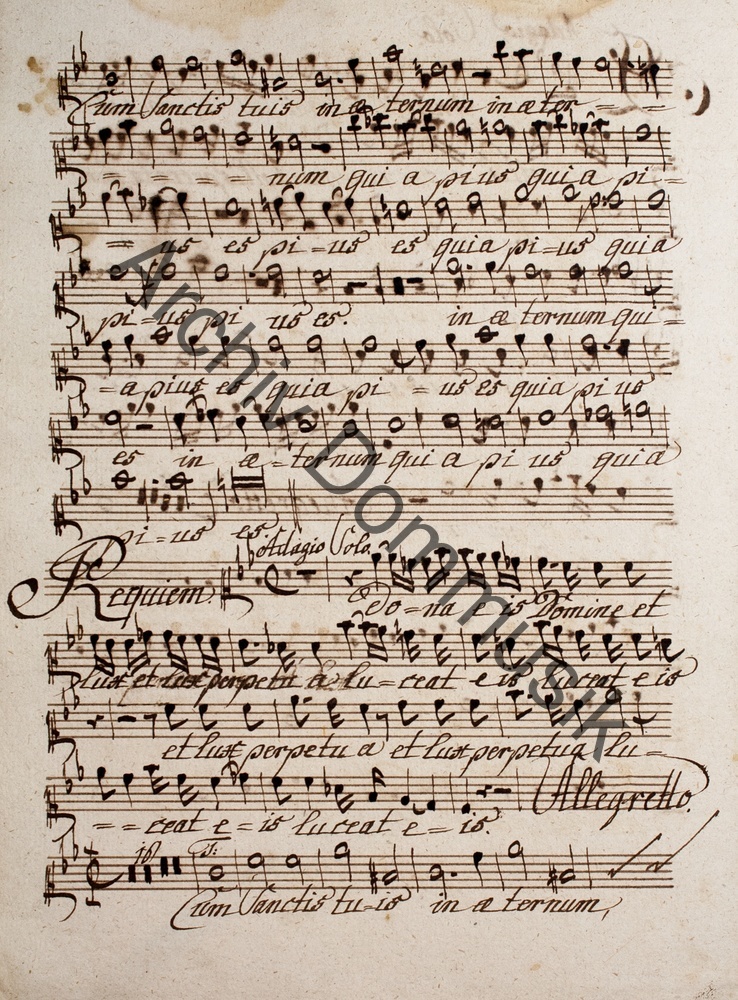 Cum Sanctis tuis in æ ternum in æ ter = = =
= = = = = num qui a pius qui a pi =
= us es pi = us es quia pi = us quia
pi = us pi us es. in æ ternum qui =
= a pius es quia pi = us es quia pi us
es in æ = ternum qui a pi us quia
pi = us es.
Adagio Solo.
Requiem. Do = na e is Domine et
lux et lux perpetu a lu = ceat e is luceat e is
et lux perpetu a et lux perpetua lu =
= = ceat e = is luceat e = is. Allegretto.
18
Cum Sanctis tu = is in æ ternum,
Archiv Dommusik